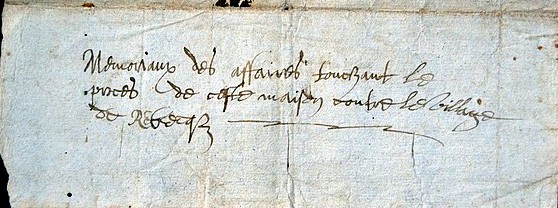 Memoriaux des affaires touchant le
proces de ceste maison contre le village
de Rebecq